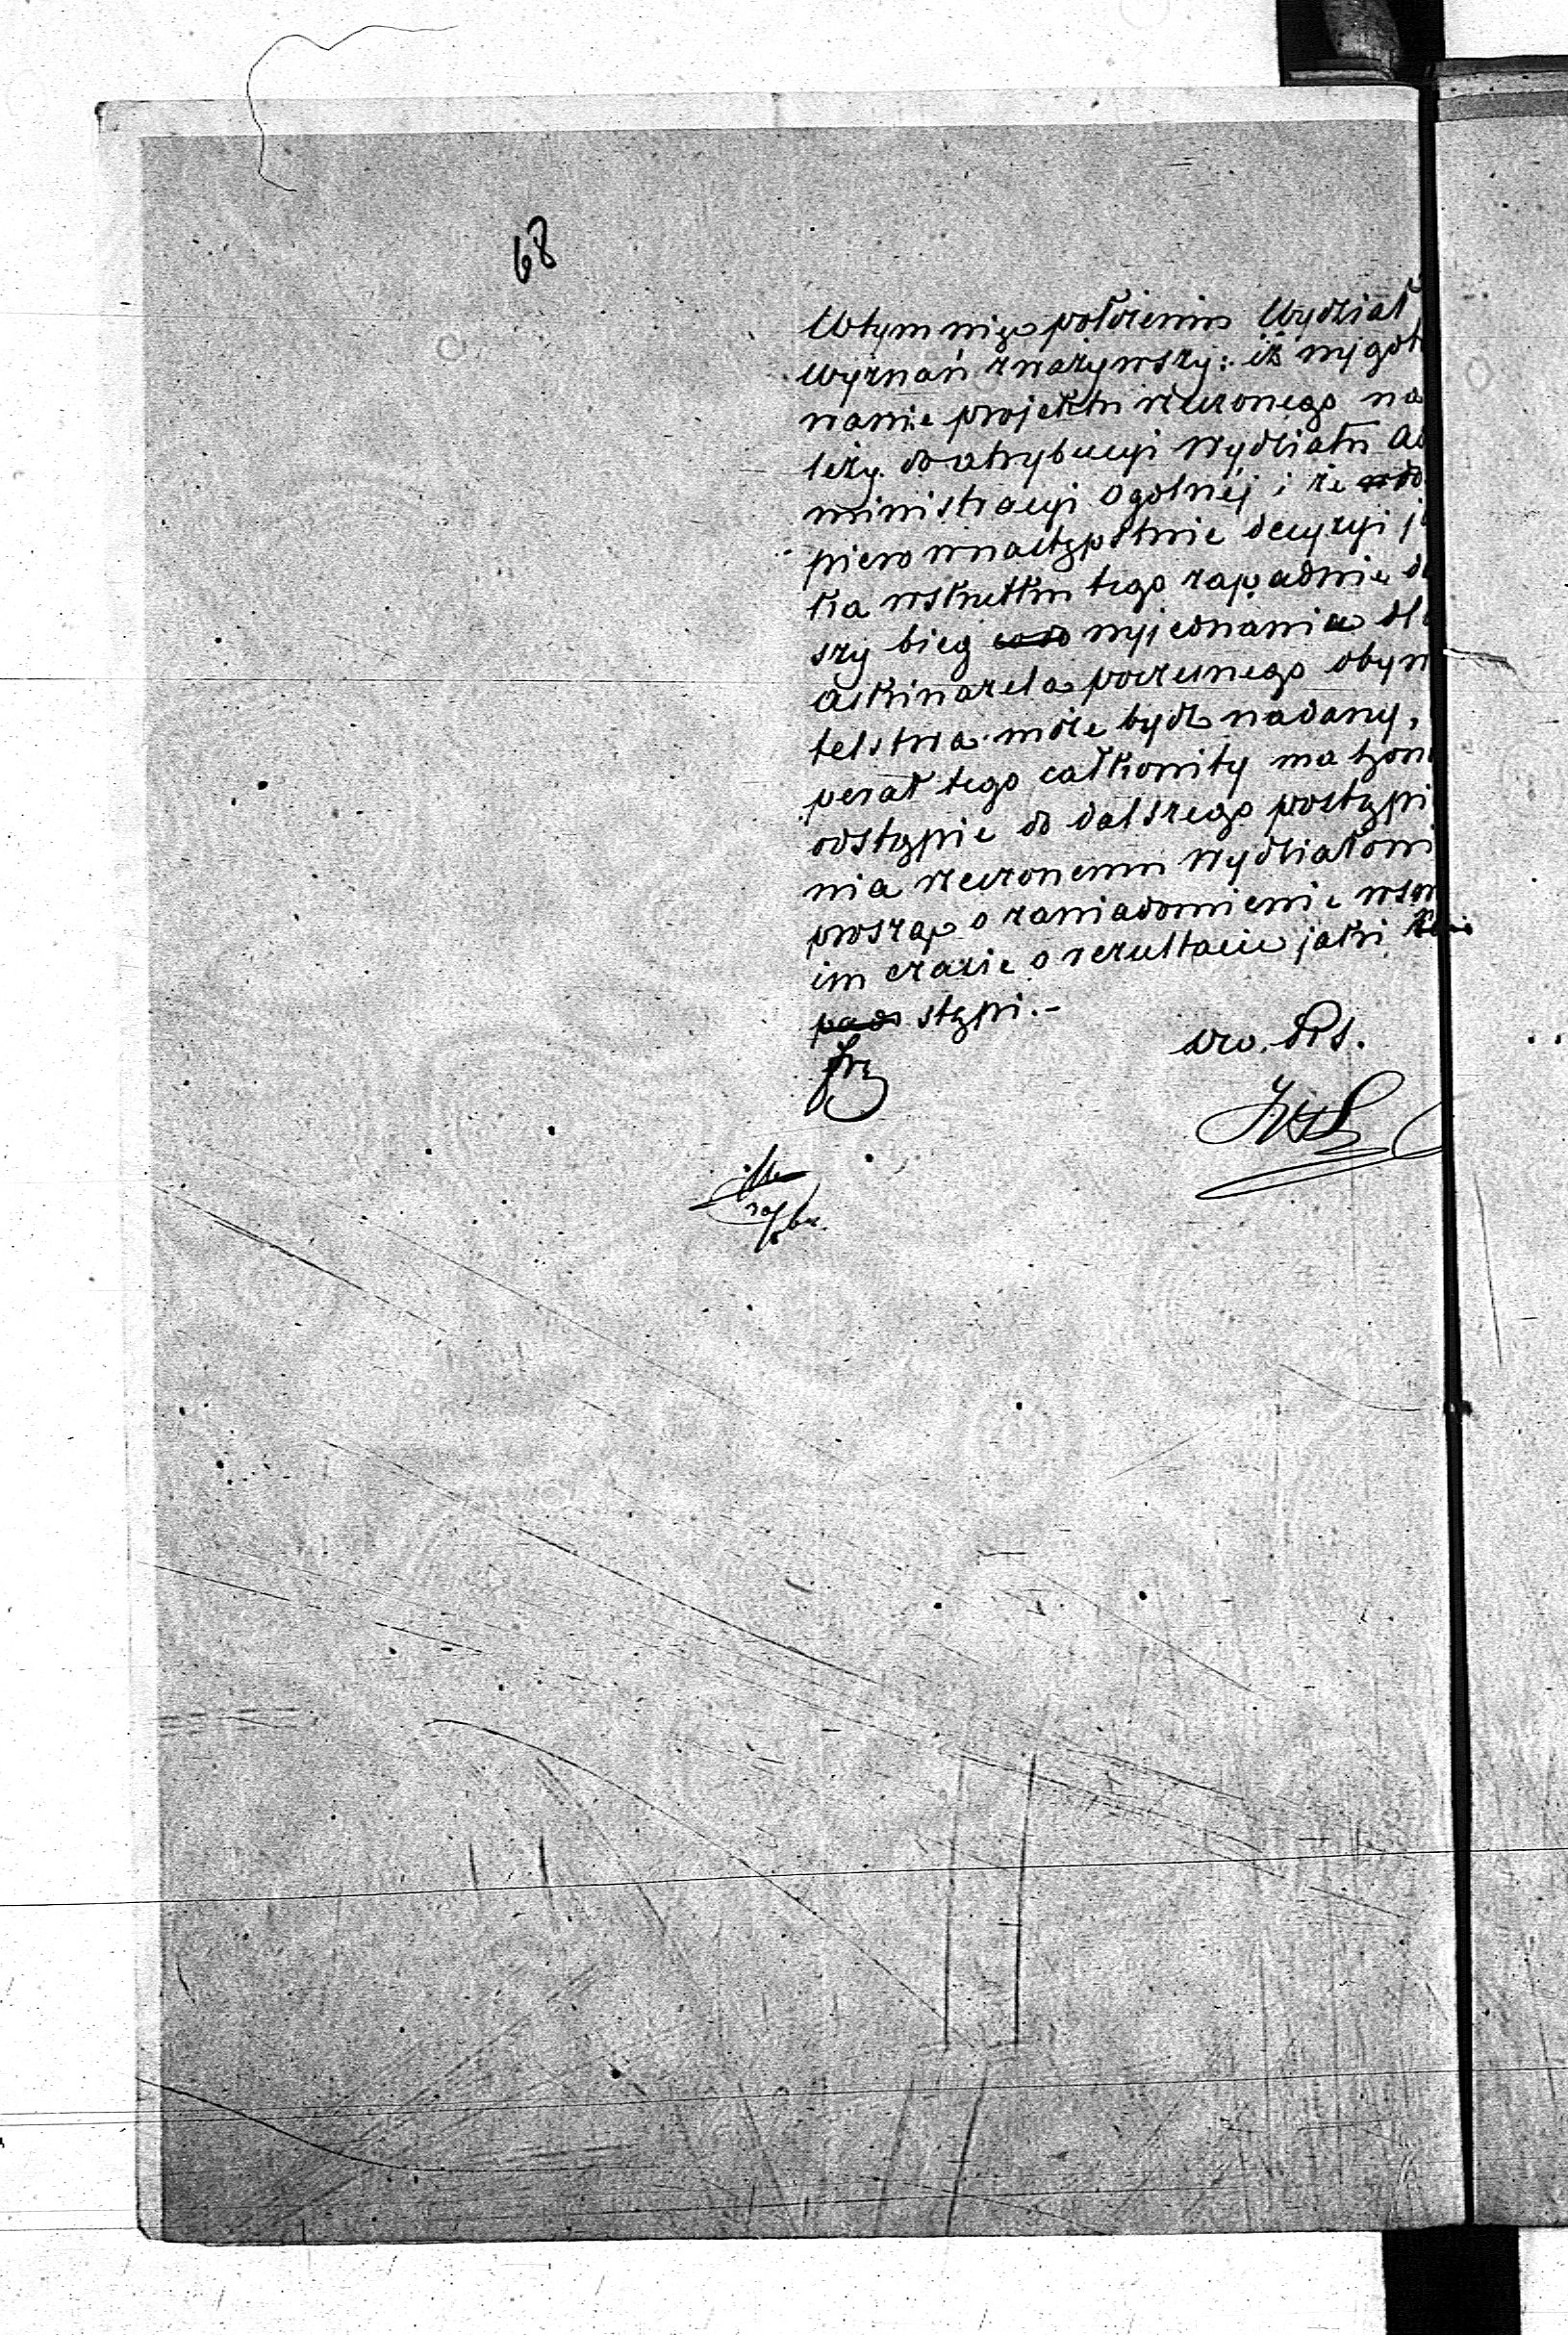 68
W tym więc położeniu Wydział
Wyznań zważywszy: iż wygoto
wanie projektu rzeczonego na
leży do atrybucyi Wydziału Ad
ministracyi Ogólnéj i że
piero w następstwie decyzyi ja
ka w skutku tego zapadnie da
szy bieg co do wyjednania dla
Askinazela poczesnego obywa
telstwa może bydź nadany,
perat tego całkowity ma honor
odstąpić do dalszego postąpie
nia rzeczonemu Wydziałowi
prosząc o zawiadomienie w swo
im czasie o rezultacie jaki
stąpi.-